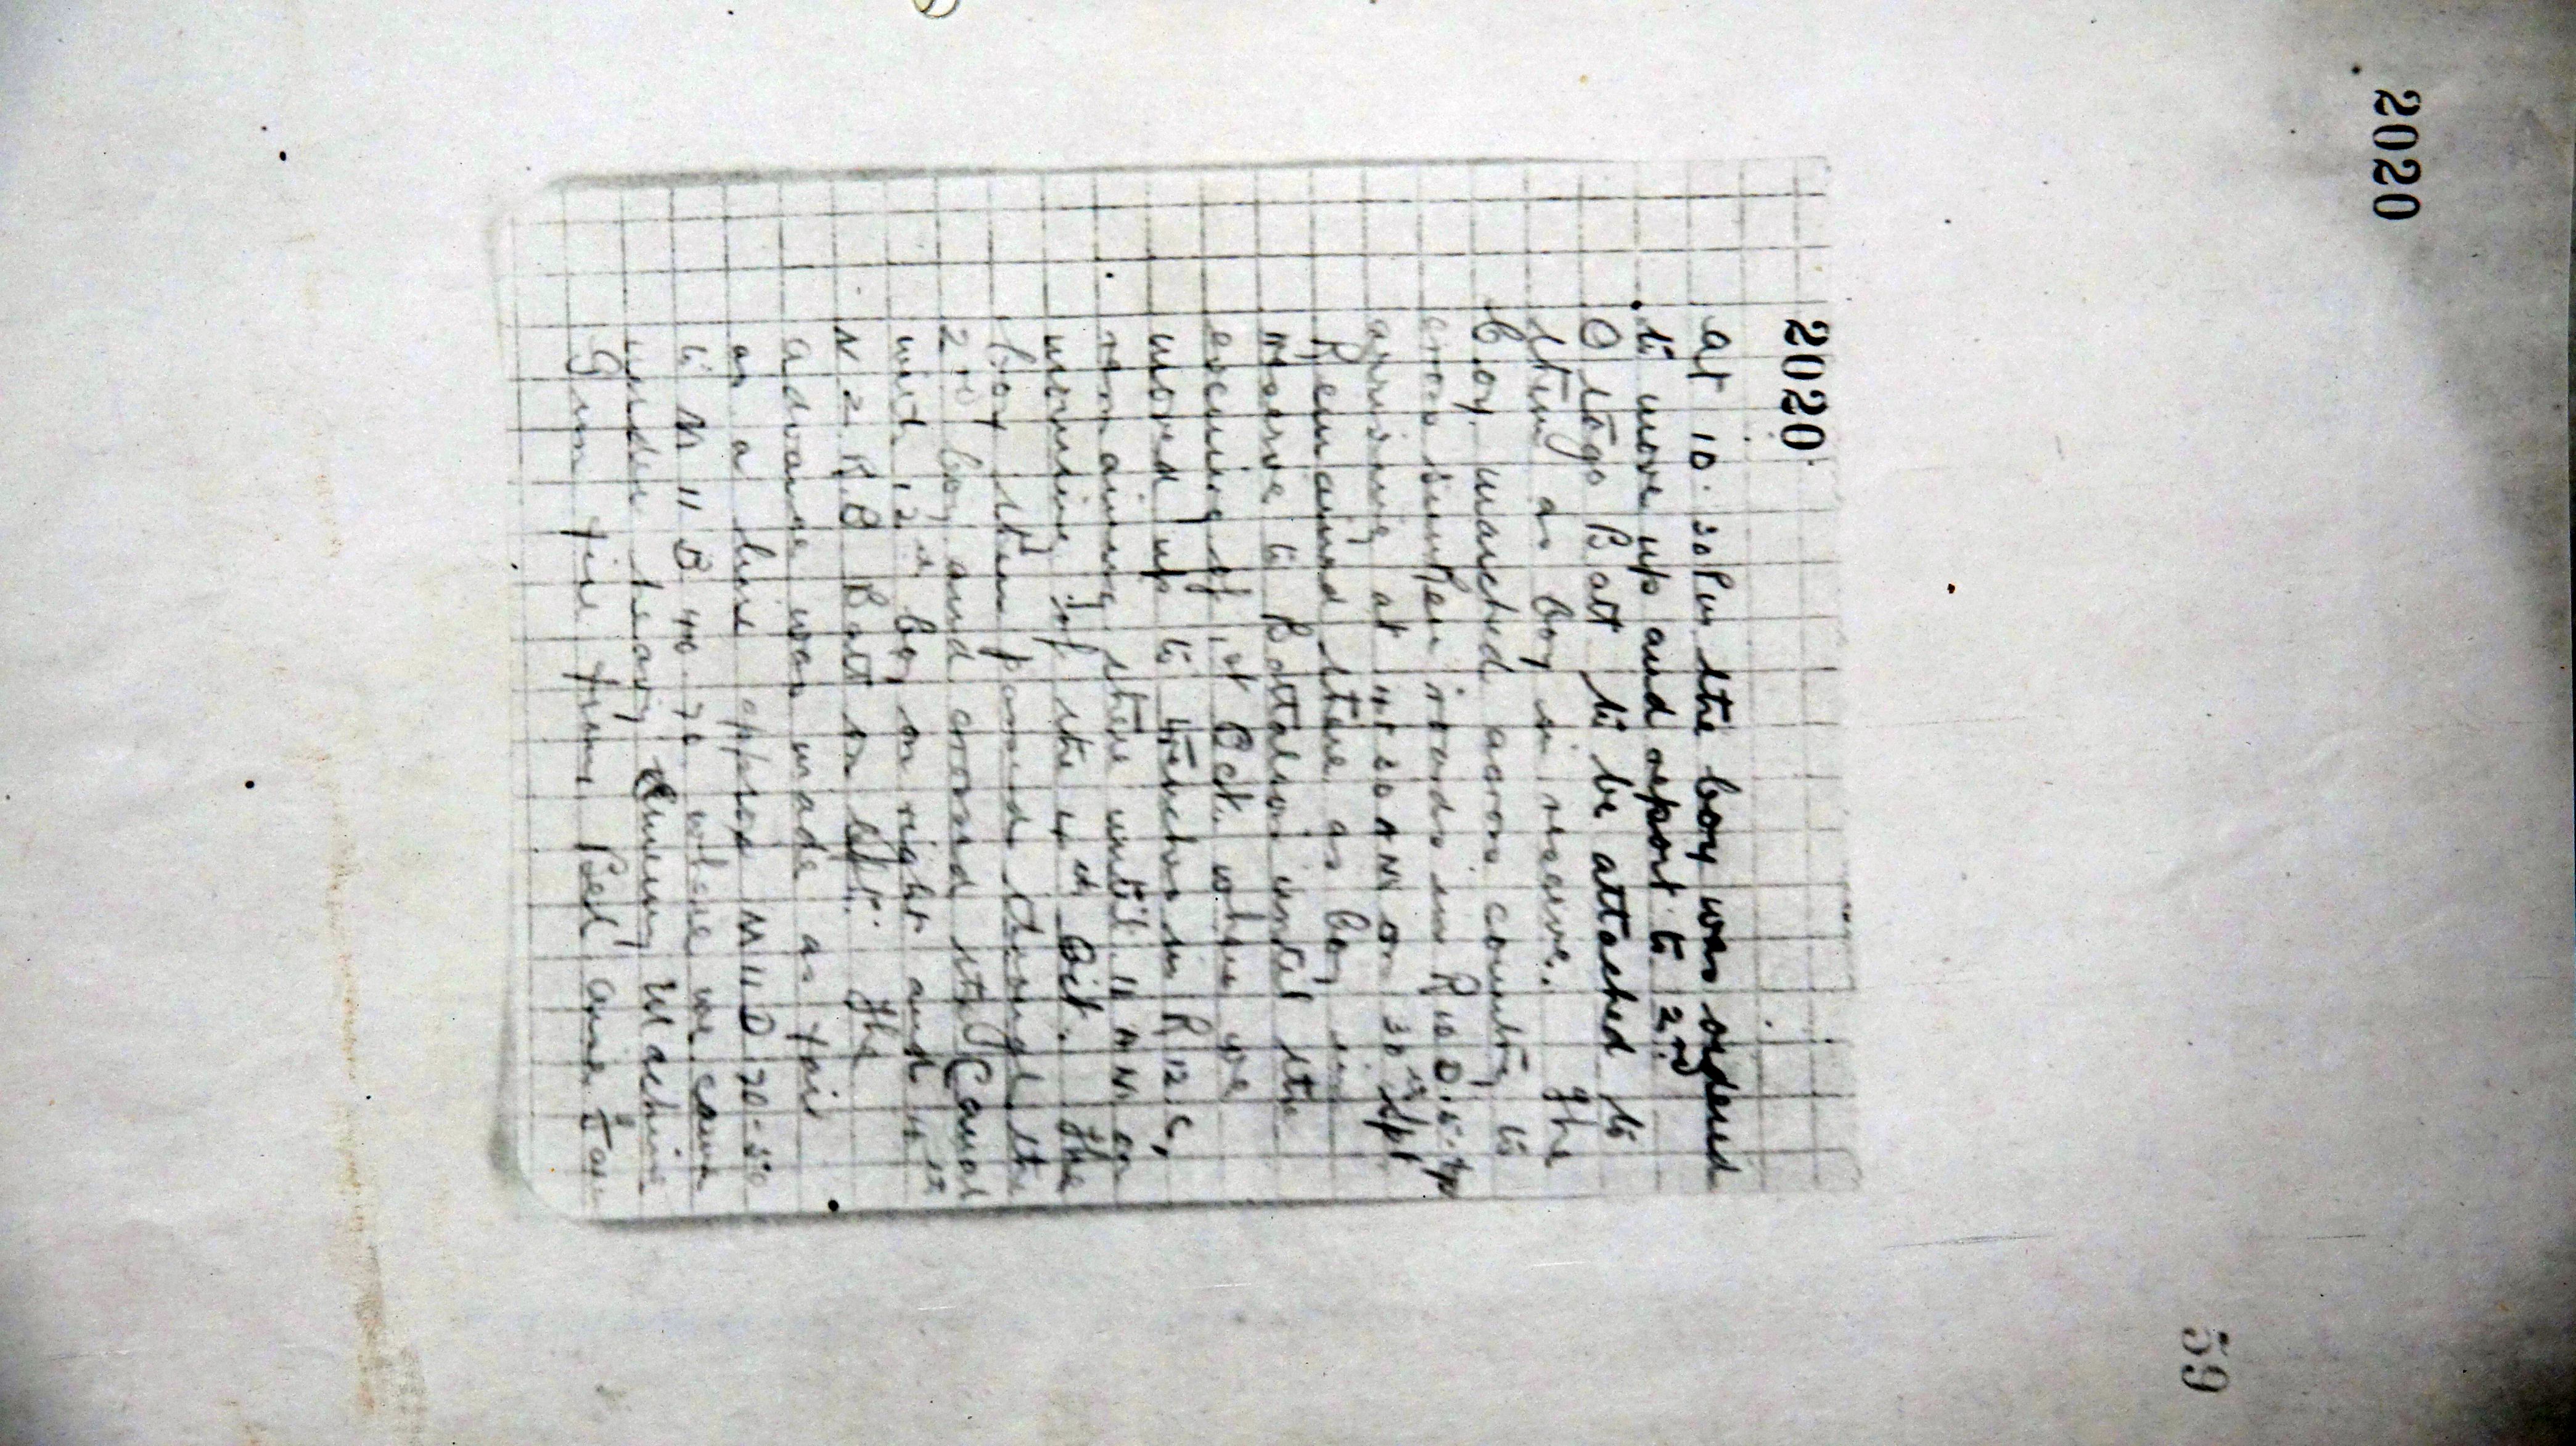 2020
59
2020
at 10.30 Pm the Coy was ordered
to move up and report to 2nd
Otago Batt to be attached to
them as Coy in reserve. The
Coy marched across country to
cross sunken roads in R 10 D
arriving at 4.20 AM on 30th Sept
Remained there as Coy in
reserve to Battalion until the
evening of 1st Oct. when we
moved up to trenches in R 12 C,
remaining there until 11 AM on
morning of the 4th Oct. The
Coy then passed through the
2nd Coy and crossed the Canal
with 12th Coy on right and 4th
N Z R B Batt on left. The
advance was made as far
as a line approx M 11 D 70-50
to M 11 B 40 70 where we came
under heavy Enemy Machine
Gun fire from